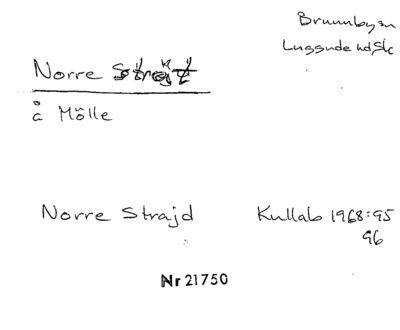 Brunnby sn
Luggude hd, Sk
Norre Strajd
å Mölle
Norre Strajd Kullab 1968:95
96
Nr 21750